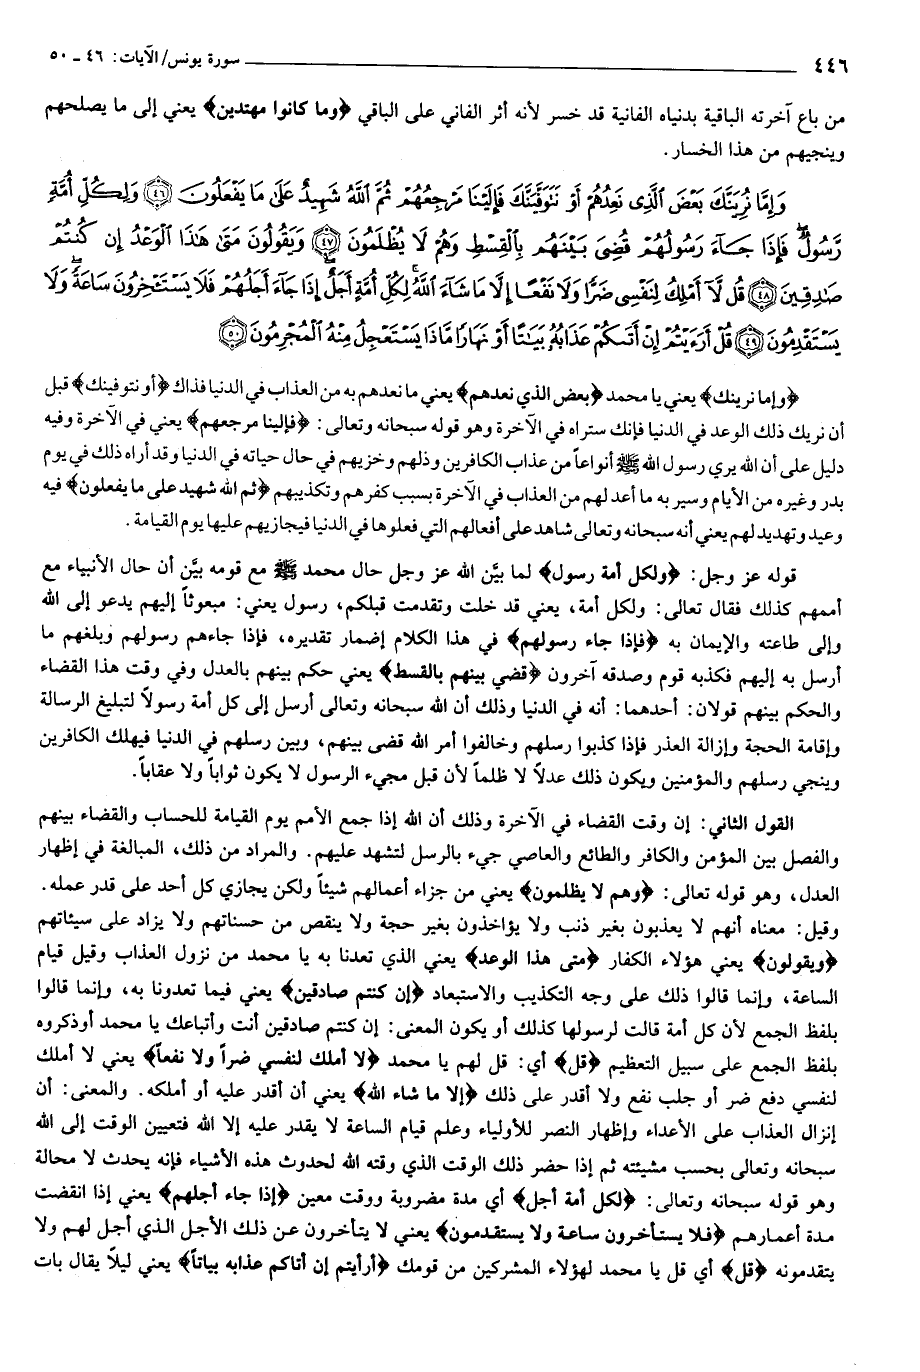 ٤٤٦ سورة يونس/الآيات: ٤٦ ـ ٥٠
من باع آخرته الباقية بدنياه الفانية قد خسر لأنه أثر الفاني على الباقي ﴿وما كانوا مهتدين﴾ يعني إلى ما يصلحهم
وينجيهم من هذا الخسار.
وَإِمَّا نُرِيَنَّكَ بَعْضَ ٱلَّذِى نَعِدُهُمْ أَوْ نَتَوَفَّيَنَّكَ فَإِلَيْنَا مَرْجِعُهُمْ ثُمَّ ٱللَّهُ شَهِيدٌ عَلَىٰ مَا يَفْعَلُونَ ﴿٤٦﴾ وَلِكُلِّ أُمَّةٍ
رَّسُولٌ ۖ فَإِذَا جَآءَ رَسُولُهُمْ قُضِىَ بَيْنَهُم بِٱلْقِسْطِ وَهُمْ لَا يُظْلَمُونَ ﴿٤٧﴾ وَيَقُولُونَ مَتَىٰ هَٰذَا ٱلْوَعْدُ إِن كُنتُمْ
صَٰدِقِينَ ﴿٤٨﴾ قُل لَّآ أَمْلِكُ لِنَفْسِى ضَرًّا وَلَا نَفْعًا إِلَّا مَا شَآءَ ٱللَّهُ ۗ لِكُلِّ أُمَّةٍ أَجَلٌ ۚ إِذَا جَآءَ أَجَلُهُمْ فَلَا يَسْتَـْٔخِرُونَ سَاعَةً ۖ وَلَا
يَسْتَقْدِمُونَ ﴿٤٩﴾ قُلْ أَرَءَيْتُمْ إِنْ أَتَىٰكُمْ عَذَابُهُۥ بَيَٰتًا أَوْ نَهَارًا مَّاذَا يَسْتَعْجِلُ مِنْهُ ٱلْمُجْرِمُونَ ﴿٥٠﴾
﴿وإما نرينك﴾ يعني يا محمد ﴿بعض الذي نعدهم﴾ يعني ما نعدهم به من العذاب في الدنيا فذاك ﴿أو نتوفينك﴾ قبل
أن نريك ذلك الوعد في الدنيا فإنك ستراه في الآخرة وهو قوله سبحانه وتعالى: ﴿فإلينا مرجعهم﴾ يعني في الآخرة وفيه
دليل على أن الله يري رسول الله ﷺ أنواعاً من عذاب الكافرين وذلهم وخزيهم في حال حياته في الدنيا وقد أراه ذلك في يوم
بدر وغيره من الأيام وسيريه ما أعد لهم من العذاب في الآخرة بسبب كفرهم وتكذيبهم ﴿ثم الله شهيد على ما يفعلون﴾ فيه
وعيد وتهديد لهم يعني أنه سبحانه وتعالى شاهد على أفعالهم التي فعلوها في الدنيا فيجازيهم عليها يوم القيامة.
قوله عز وجل: ﴿ولكل أمة رسول﴾ لما بيَّن الله عز وجل حال محمد ﷺ مع قومه بيَّن أن حال الأنبياء مع
أممهم كذلك فقال تعالى: ولكل أمة، يعني قد خلت وتقدمت قبلكم، رسول يعني: مبعوثاً إليهم يدعو إلى الله
وإلى طاعته والإيمان به ﴿فإذا جاء رسولهم﴾ في هذا الكلام إضمار تقديره، فإذا جاءهم رسولهم وبلغهم ما
أرسل به إليهم فكذبه قوم وصدقه آخرون ﴿قضي بينهم بالقسط﴾ يعني حكم بينهم بالعدل وفي وقت هذا القضاء
والحكم بينهم قولان: أحدهما: أنه في الدنيا وذلك أن الله سبحانه وتعالى أرسل إلى كل أمة رسولاً لتبليغ الرسالة
وإقامة الحجة وإزالة العذر فإذا كذبوا رسلهم وخالفوا أمر الله قضى بينهم، وبين رسلهم في الدنيا فيهلك الكافرين
وينجي رسلهم والمؤمنين ويكون ذلك عدلاً لا ظلماً لأن قبل مجيء الرسول لا يكون ثواباً ولا عقاباً.
القول الثاني: إن وقت القضاء في الآخرة وذلك أن الله إذا جمع الأمم يوم القيامة للحساب والقضاء بينهم
والفصل بين المؤمن والكافر والطائع والعاصي جيء بالرسل لتشهد عليهم. والمراد من ذلك، المبالغة في إظهار
العدل، وهو قوله تعالى: ﴿وهم لا يظلمون﴾ يعني من جزاء أعمالهم شيئاً ولكن يجازي كل أحد على قدر عمله.
وقيل: معناه أنهم لا يعذبون بغير ذنب ولا يؤاخذون بغير حجة ولا ينقص من حسناتهم ولا يزاد على سيئاتهم
﴿ويقولون﴾ يعني هؤلاء الكفار ﴿متى هذا الوعد﴾ يعني الذي تعدنا به يا محمد من نزول العذاب وقيل قيام
الساعة، وإنما قالوا ذلك على وجه التكذيب والاستبعاد ﴿إن كنتم صادقين﴾ يعني فيما تعدونا به، وإنما قالوا
بلفظ الجمع لأن كل أمة قالت لرسولها كذلك أو يكون المعنى: إن كنتم صادقين أنت وأتباعك يا محمد أوذكروه
بلفظ الجمع على سبيل التعظيم ﴿قل﴾ أي: قل لهم يا محمد ﴿لا أملك لنفسي ضراً ولا نفعاً﴾ يعني لا أملك
لنفسي دفع ضر أو جلب نفع ولا أقدر على ذلك ﴿إلا ما شاء الله﴾ يعني أن أقدر عليه أو أملكه. والمعنى: أن
إنزال العذاب على الأعداء وإظهار النصر للأولياء وعلم قيام الساعة لا يقدر عليه إلا الله فتعيين الوقت إلى الله
سبحانه وتعالى بحسب مشيئته ثم إذا حضر ذلك الوقت الذي وقته الله لحدوث هذه الأشياء فإنه يحدث لا محالة
وهو قوله سبحانه وتعالى: ﴿لكل أمة أجل﴾ أي مدة مضروبة ووقت معين ﴿إذا جاء أجلهم﴾ يعني إذا انقضت
مدة أعمارهم ﴿فلا يستأخرون ساعة ولا يستقدمون﴾ يعني لا يتأخرون عن ذلك الأجل الذي أجل لهم ولا
يتقدمونه ﴿قل﴾ أي قل يا محمد لهؤلاء المشركين من قومك ﴿أرأيتم إن أتاكم عذابه بياتاً﴾ يعني ليلاً يقال بات